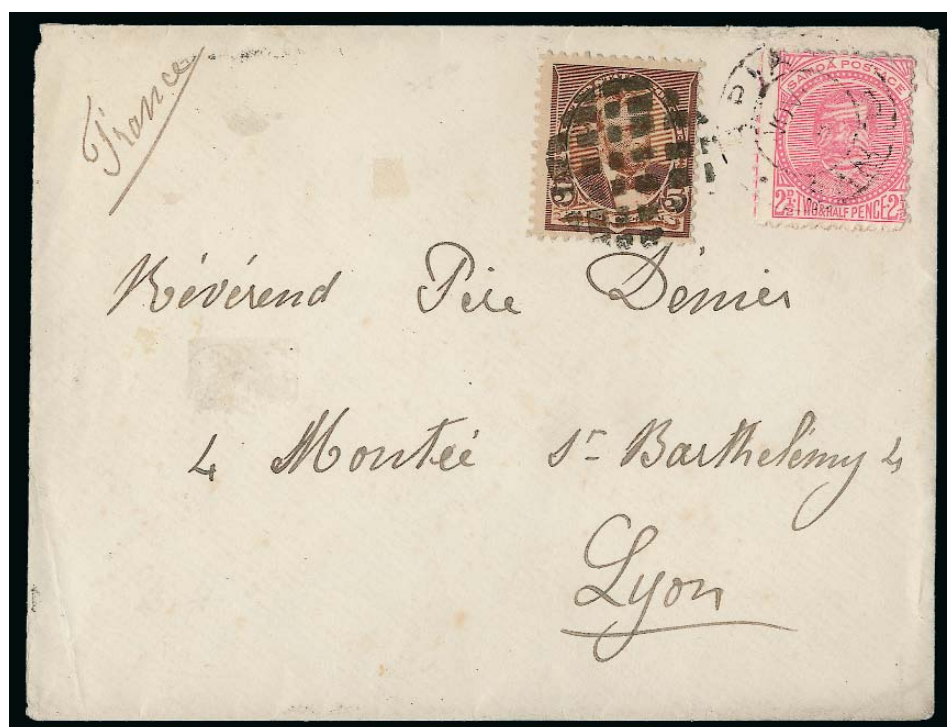 France
SAMOA POSTAGE
2½D TWO & HALF PENCE 2½D
5 5
APIA
Révérend Père Dénier
4 Montée St Barthélémy 4
Lyon